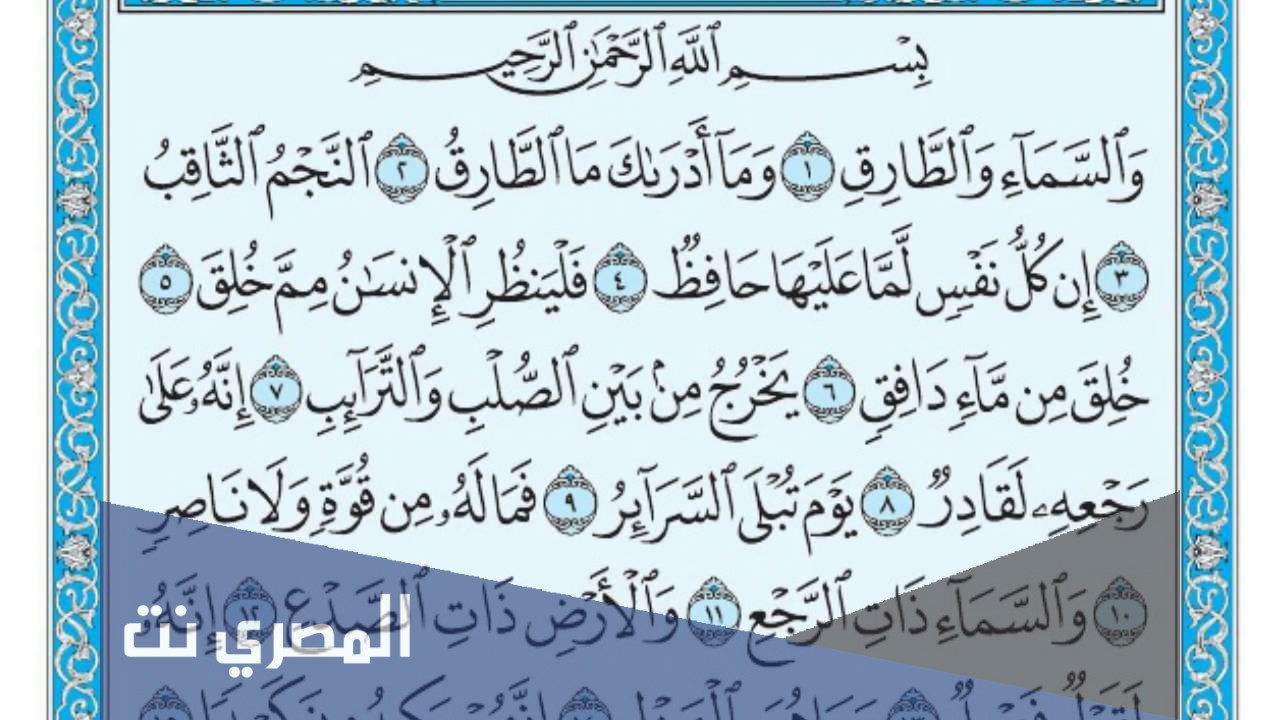 بِسْمِ ٱللَّهِ ٱلرَّحْمَٰنِ ٱلرَّحِيمِ
وَٱلسَّمَآءِ وَٱلطَّارِقِ ١ وَمَآ أَدْرَىٰكَ مَا ٱلطَّارِقُ ٢ ٱلنَّجْمُ ٱلثَّاقِبُ
٣ إِن كُلُّ نَفْسٍ لَّمَّا عَلَيْهَا حَافِظٌ ٤ فَلْيَنظُرِ ٱلْإِنسَٰنُ مِمَّ خُلِقَ ٥
خُلِقَ مِن مَّآءٍ دَافِقٍ ٦ يَخْرُجُ مِنۢ بَيْنِ ٱلصُّلْبِ وَٱلتَّرَآئِبِ ٧ إِنَّهُۥ عَلَىٰ
رَجْعِهِۦ لَقَادِرٌ ٨ يَوْمَ تُبْلَى ٱلسَّرَآئِرُ ٩ فَمَا لَهُۥ مِن قُوَّةٍ وَلَا نَاصِرٍ
١٠ وَٱلسَّمَآءِ ذَاتِ ٱلرَّجْعِ ١١ وَٱلْأَرْضِ ذَاتِ ٱلصَّدْعِ ١٢ إِنَّهُۥ
المصري نت